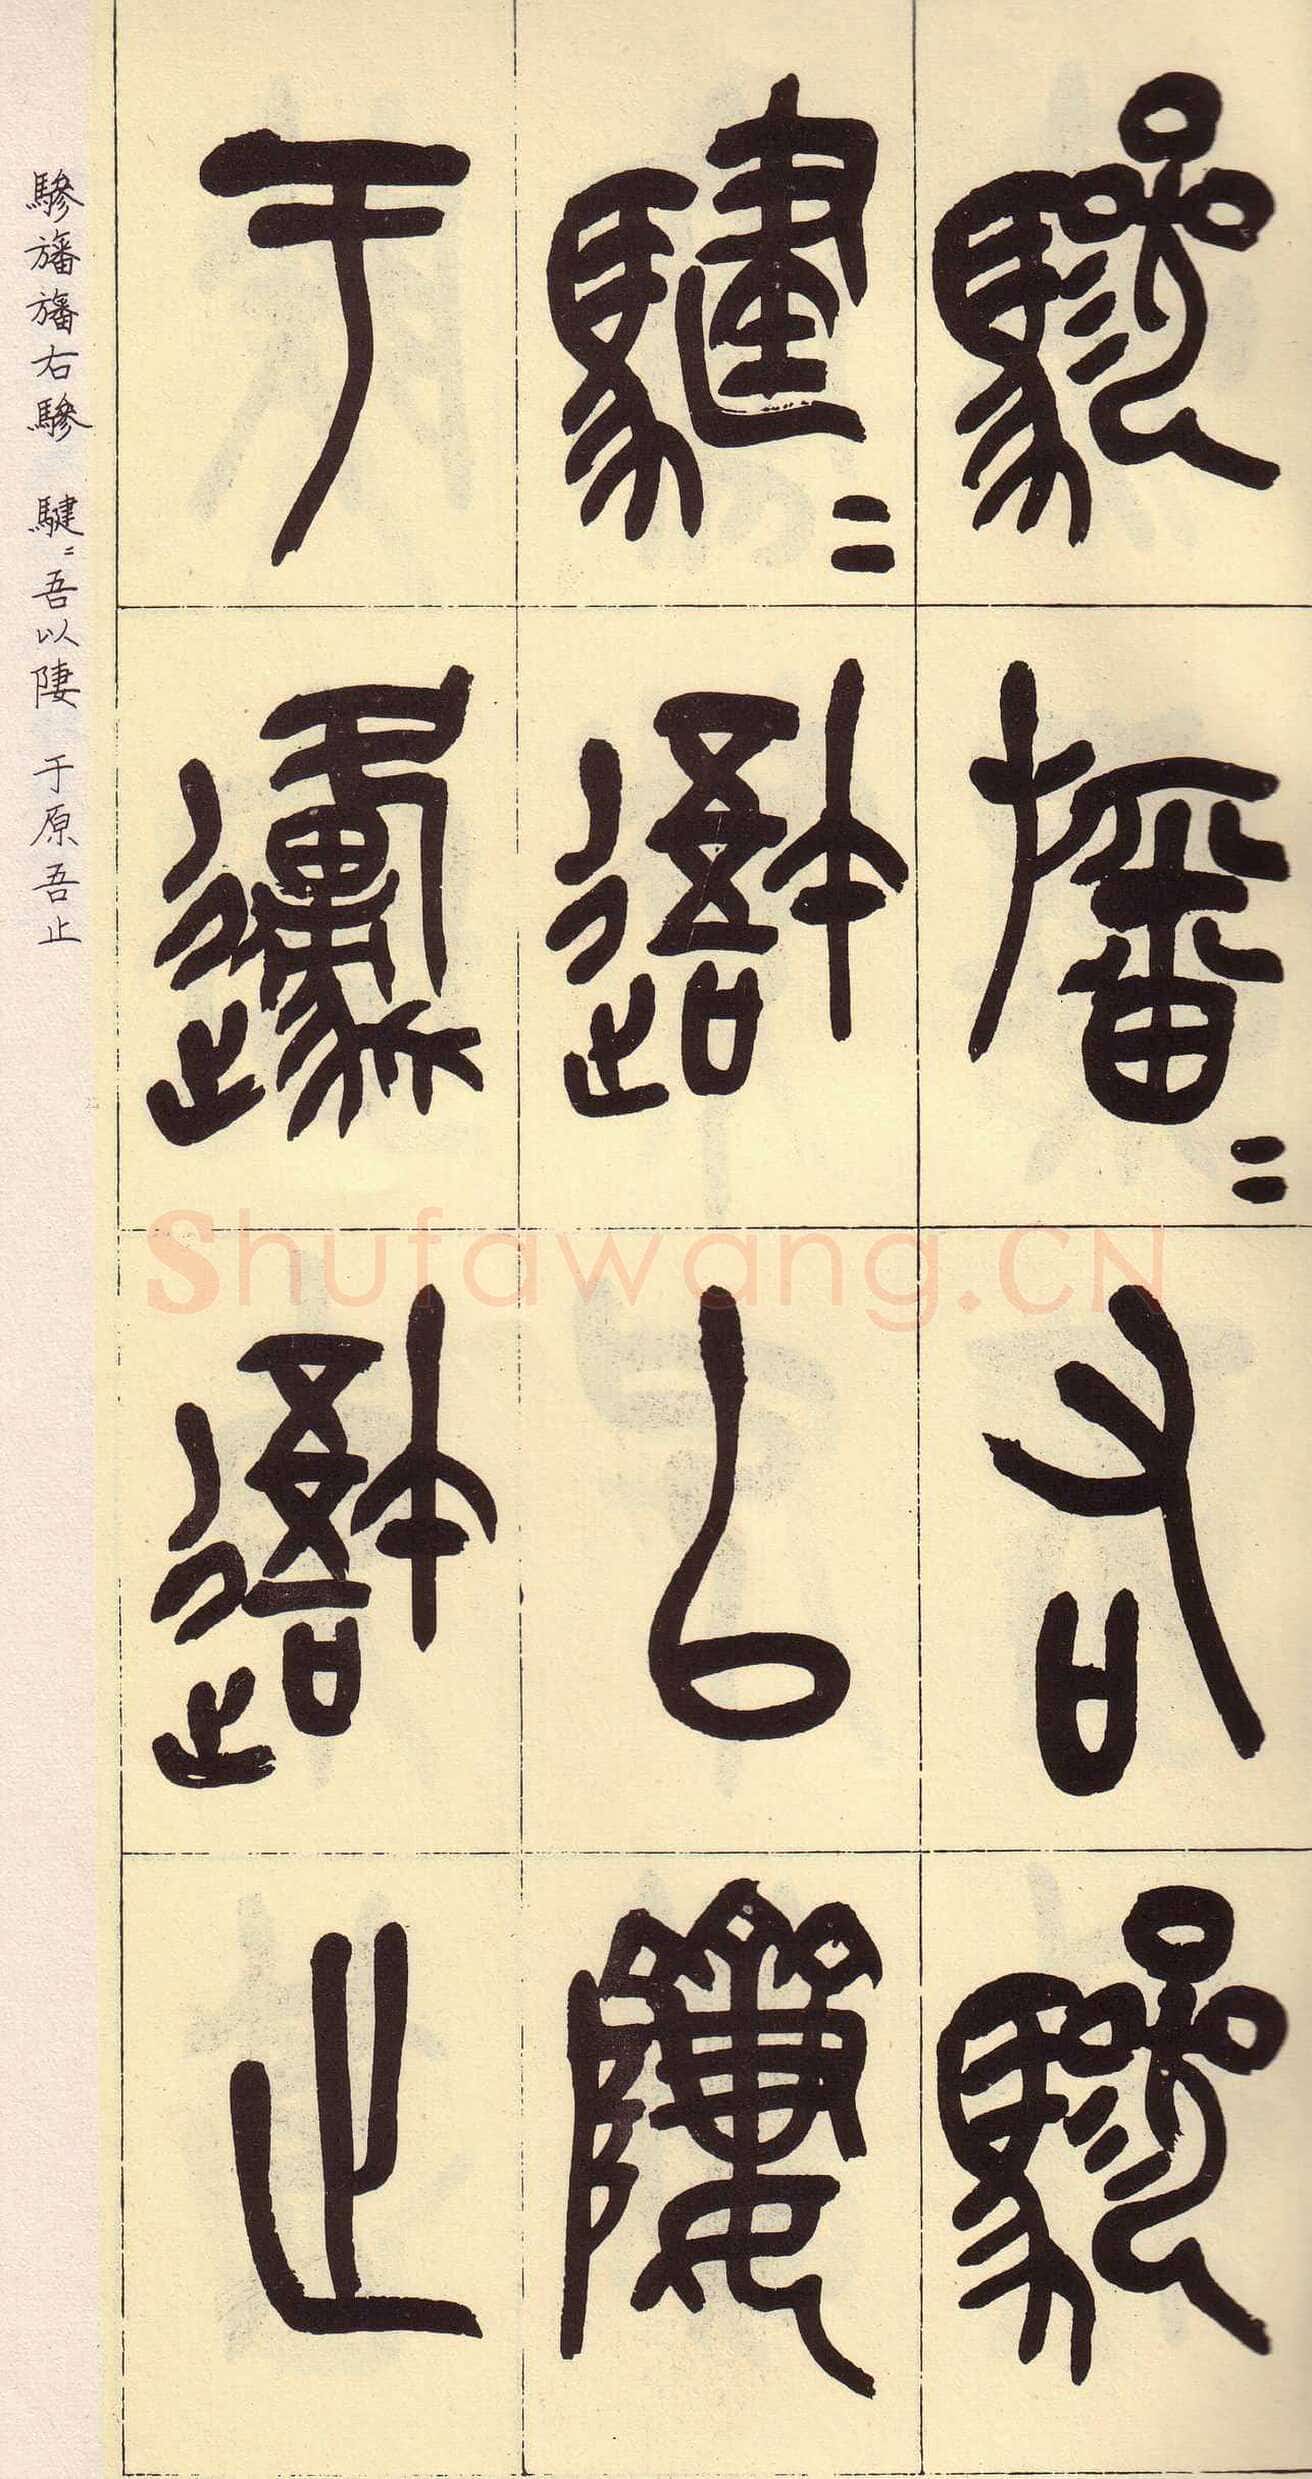 驂旛〻右驂
騝〻䢩以隮
于邍䢩止
驂旛旛右驂 騝〻吾以隮 于原吾止
Shufawang.CN